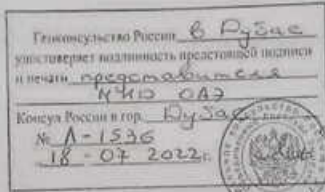 Генконсульство России в Дубае
удостоверяет подлинность предстоящей подписи
и печати представителя
МИД ОАЭ
Консул России в гор. Дубае
№ Л-1536
18-07 2022 г.